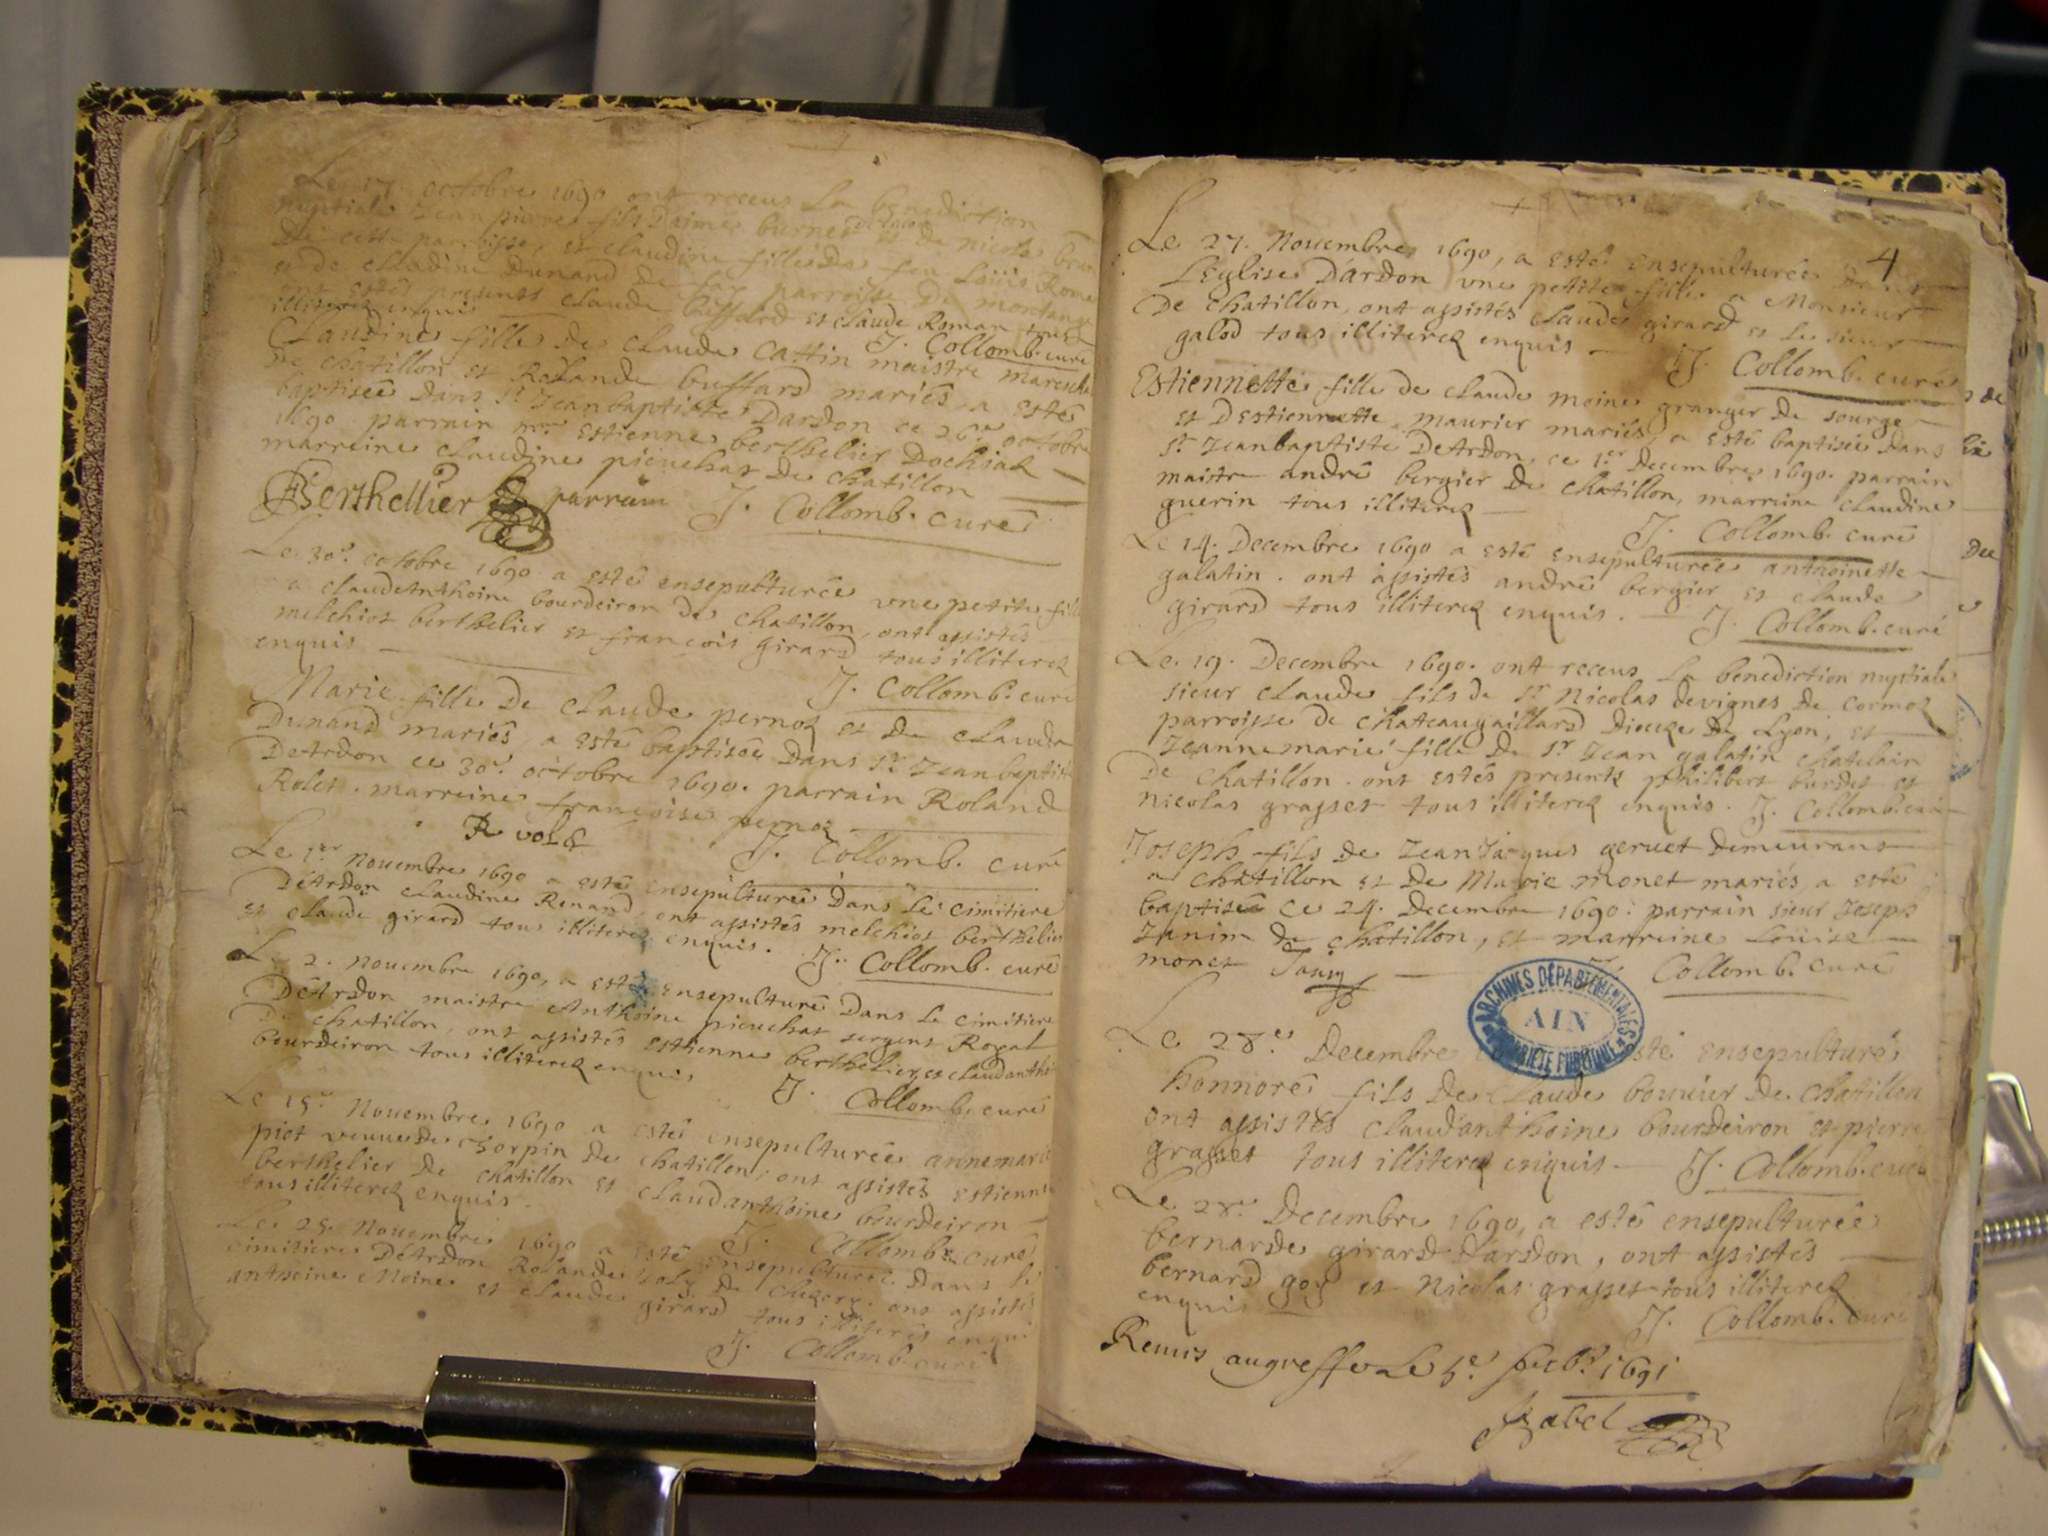 Le 17 octobre 1690 ont receus La benediction
nuptiale Jean pierre fils D'aimé burnet et de nicole
De cette parroisse, et claudine fille de feu Loüis Roma
et de claudine Dunand de parroisse De
ont estés presents claude buffard et claude Roman tous
illiterez enquis J. Collomb. curé
Claudine fille de claude Cattin maistre maresch
De chatillon et Rolande buffard mariés a esté
baptisée dans St Jeanbaptiste Dardon ce 26e octobre
1690. parrain mre Estienne berthelier
marreine claudine pieuchat de chatillon
Berthellier parrain J. Collomb. curé
Le 30e. octobre 1690 a esté ensepulturée une petite fille
a claudeanthoine bourdeiron de chatillon, ont assistés
melchiot berthelier et françois girard tous illiterez
enquis
J. Collomb. curé
Marie fille De claude pernoz et de claude
Dunand mariés a esté baptisée Dans St Jeanbaptist
DeArdon ce 30e. octobre 1690. parrain Roland
Rolet. marreine françoise pernoz
J. Collomb. curé
Le 1er Novembre 1690 a esté ensepulturée Dans Le cimitiere
DeArdon claudine Renand, ont assistés melchiot berthelier
et claude girard tous illiterez enquis. J. Collomb. curé
Le 2. Novembre 1690, a esté ensepulturé Dans Le cimitiere
DeArdon maistre Anthoine pieuchat sergent Royal
De chatillon, ont assistés estienne berthelier et claudantho
bourdeiron tous illiterez enquis
J. Collomb. curé
Le 15e Novembre 1690 a esté ensepulturée annemarie
piot veuve de chorpin de chatillon, ont assistés estienne
berthelier de chatillon et claudanthoine bourdeiron
tous illiterez enquis.
J. Collomb. curé
Le 25. Novembre 1690 a esté ensepulturée Dans le
cimitiere DeArdon Rolande de ont assistés
anthoine Moine et claude girard tous illiterés enqui
J. Collomb. curé
4
Le 27. Novembre 1690, a esté ensepulturée Dans
L'eglise D'ardon une petite fille a Monsieur
De chatillon, ont assistés claude girard et le sieur
galod tous illiterez enquis
J. Collomb. curé
Estiennette fille de claude moine granger de sourge
et D'Estiennette maurier mariés, a esté baptisée dans
St Jeanbaptiste DeArdon, ce 1er Decembre 1690. parrain
maistre andré bergier De chatillon, marreine claudine
guerin tous illiterez
J. Collomb. curé
Le 14. Decembre 1690 a esté ensepulturée anthoinette
galatin. ont assistés andré bergier et claude
girard tous illiterez enquis. J. Collomb. curé
Le 19. Decembre 1690. ont receus La benediction nuptiale
sieur claude fils de Sr Nicolas devignes de cormoz
parroisse de chateaugaillard Dioceze De Lyon, et
Jeannemarie fille de Sr Jean galatin chatelain
De chatillon. ont estés presents philibert burdet et
Nicolas grasset tous illiterez enquis. J. Collomb. curé
Joseph fils de Jean Jacques gervet demeurant
a chatillon et De Marie monet mariés, a esté
baptisée ce 24. Decembre 1690. parrain sieur Joseph
Janin de chatillon, et marreine Loüise
monet Janin J. Collomb. curé
ARCHIVES DÉPARTEMENTALES
AIN
PROPRIÉTÉ PUBLIQUE
Le 28e Decembre esté ensepulturé
honnoré fils De claude bouvier De chatillon
ont assistés claudanthoine bourdeiron et pierre
grasset tous illiterez enquis J. Collomb. curé
Le 28e Decembre 1690, a esté ensepulturée
bernarde girard Dardon, ont assistés
bernard goy et Nicolas grasset tous illiterez
enquis
J. Collomb. curé
Remis au greffe Le 5e 1691